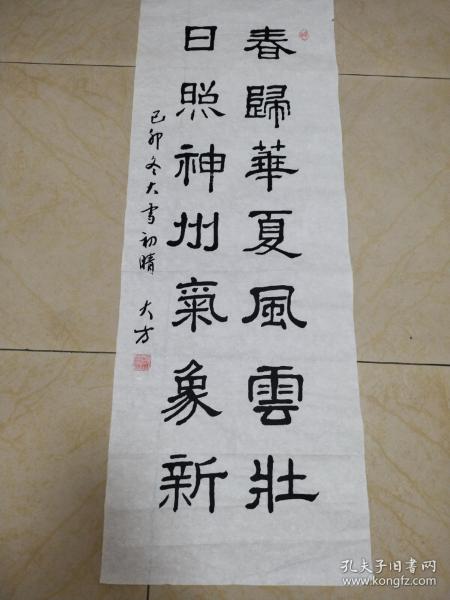 春歸華夏風雲壯
日照神州氣象新
己卯冬大雪初晴 大方
孔夫子旧书网
www.kongfz.com